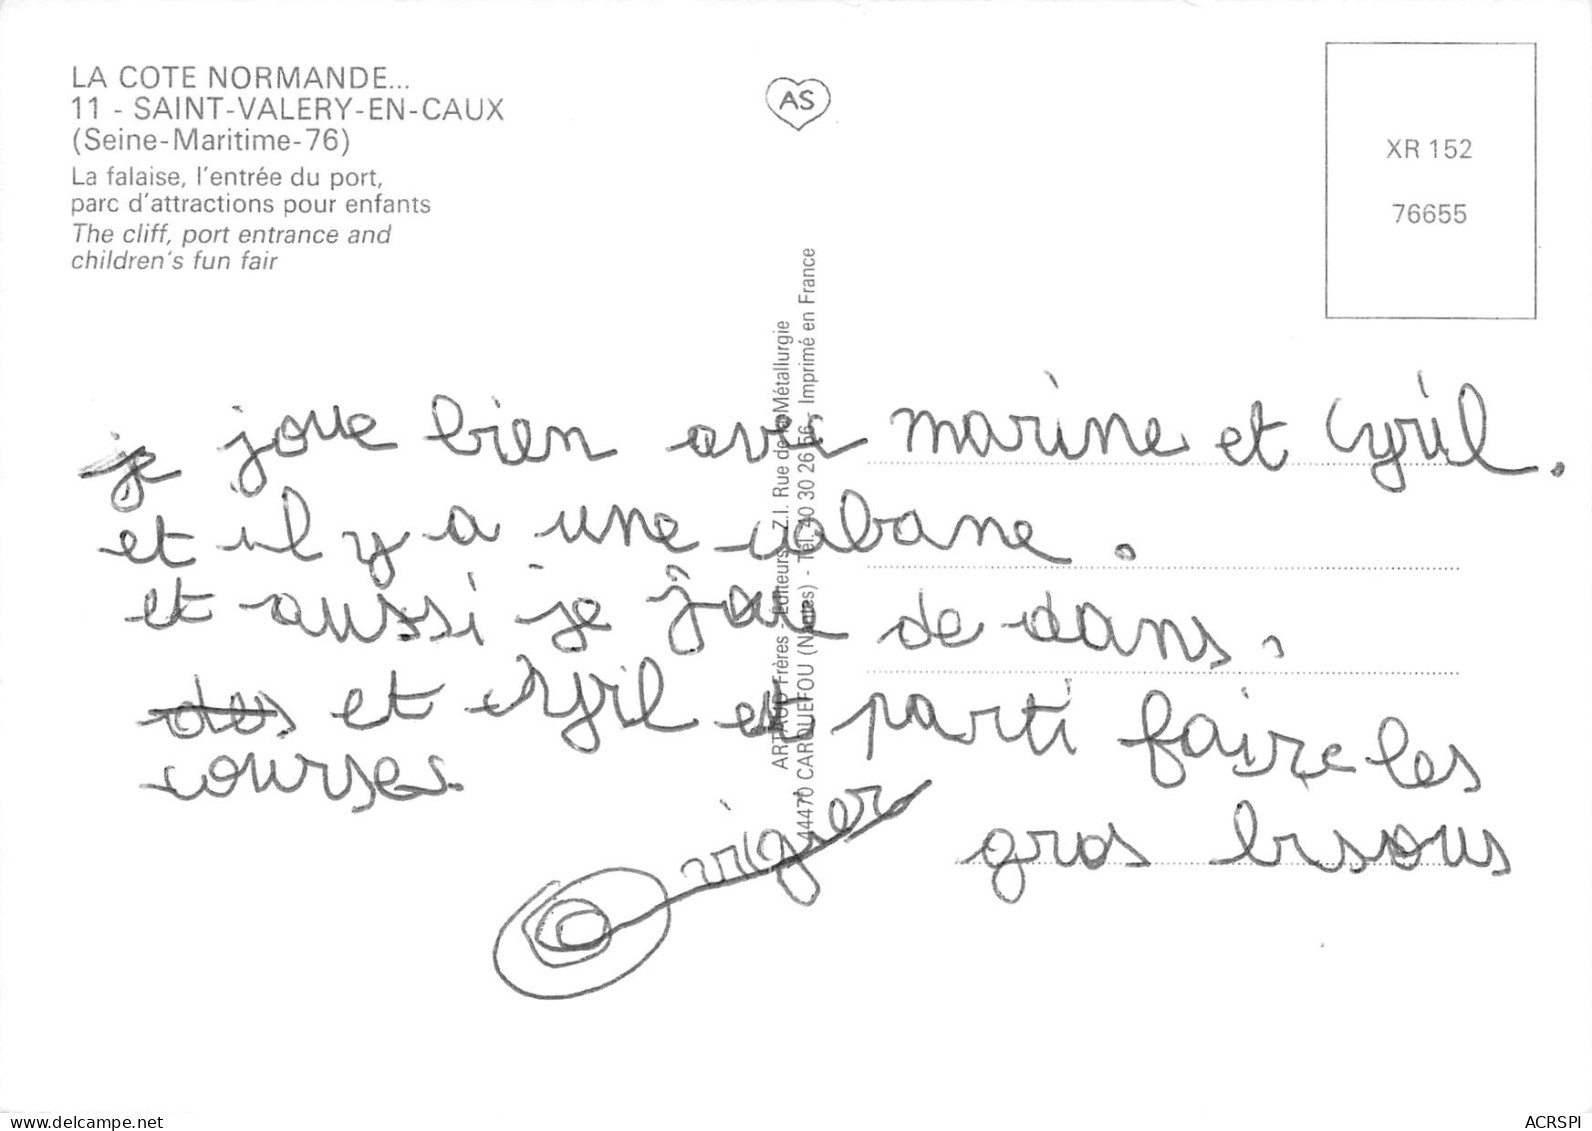 LA COTE NORMANDE...
11 - SAINT-VALERY-EN-CAUX
(Seine-Maritime-76)
La falaise, l'entrée du port,
parc d'attractions pour enfants
The cliff, port entrance and
children's fun fair
AS
XR 152
76655
ARTAUD Frères - Éditeurs - Z.I. Rue de la Métallurgie
44470 CARQUEFOU (Nantes) - Tél. 40 30 26 56 - Imprimé en France
je joue bien avec marine et Cyril.
et il y a une cabane.
et aussi je joue de dans.
des et Cyril et parti faire les
courses.
gros bisous
delcampe.net
ACRSPI